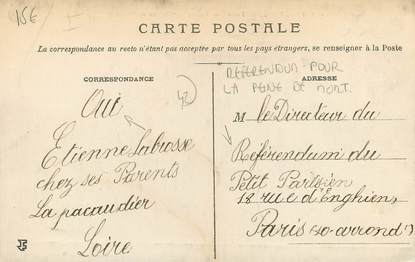 15€
CARTE POSTALE
La correspondance au recto n'étant pas acceptée par tous les pays étrangers, se renseigner à la Poste
CORRESPONDANCE
Oui
42
Etienne Labrosse
chez ses Parents
La pacaudier
Loire
RÉFÉRENDUM POUR
LA PEINE DE MORT.
ADRESSE
M le Directeur du
Référendum du
Petit Parisien
18 rue d'Enghien,
Paris (10 arrond^t)